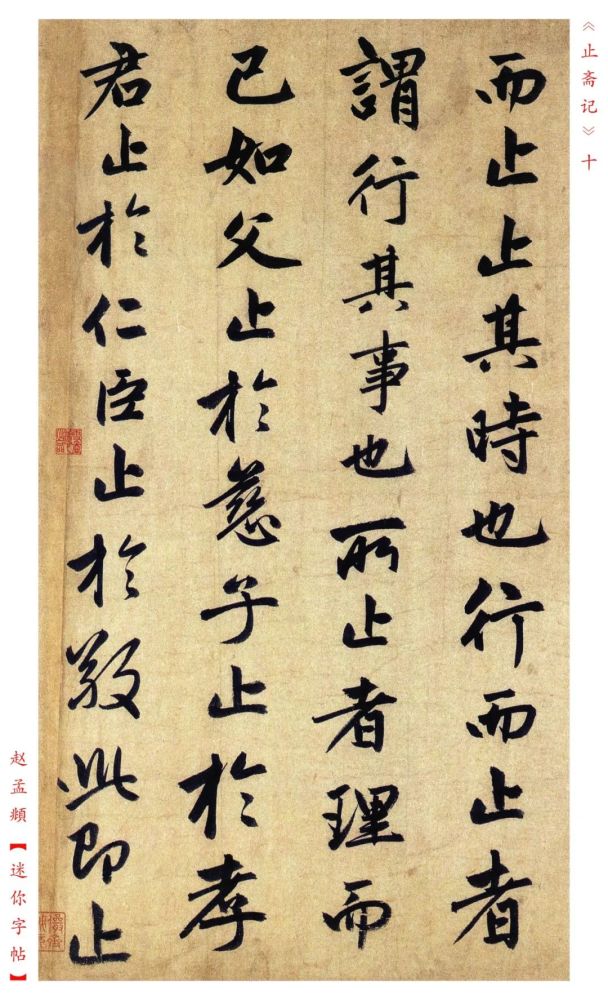 《止斋记》十
而止止其時也行而止者
謂行其事也所止者理而
已如父止於慈子止於孝
君止於仁臣止於敬此即止
赵孟頫【迷你字帖】